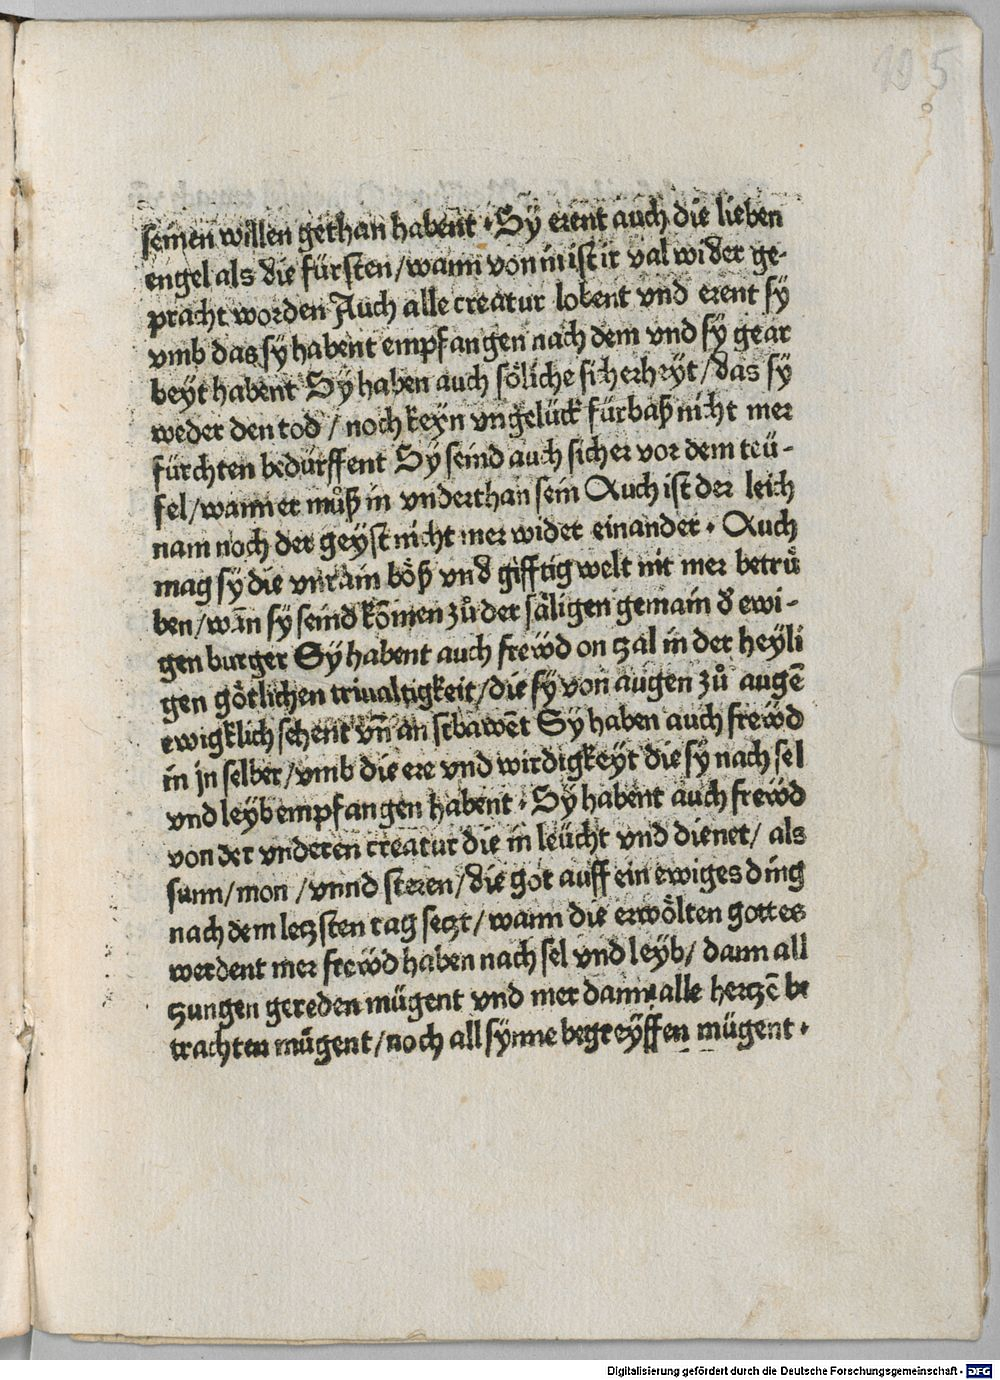 105
seinen willen gethan habent · Sy erent auch die lieben
engel als die fürsten/wann von in ist ir val wider ge-
pracht worden Auch alle creatur lobent vnd erent sy
vmb das sy habent empfangen nach dem vnd sy gear
beyt habent Sy haben auch söliche sicherheyt/das sy
weder den tod / noch keyn vngelück fürbaß nicht mer
fürchten bedürffent Sy seind auch sicher vor dem teü-
fel/wann er můß in vnderthan sein Auch ist der leich
nam noch der geyst nicht mer wider einander · Auch
mag sy die vnrain böß vnd gifftig welt nit mer betrů
ben/wañ sy seind kõmen zů der säligen gemain d̕ ewi-
gen burger Sy habent auch frewd on zal in der heyli
gen götlichen triualtigkeit/die sy von augen zů augē
ewigklich sehent vñ an schawēt Sy haben auch frewd
in jn selber/vmb die ere vnd wirdigkeyt die sy nach sel
vnd leyb empfangen habent · Sy habent auch frewd
von der vnderen creatur die in leücht vnd dienet/ als
sunn/mon /vnnd steren/die got auff ein ewiges ding
nach dem letzsten tag setzt/wann die erwölten gottes
werdent mer frewd haben nach sel vnd leyb/ dann all
zungen gereden mügent vnd mer dann alle hertzē be
trachten mügent/noch all synne begreyffen mügent ·
Digitalisierung gefördert durch die Deutsche Forschungsgemeinschaft - DFG